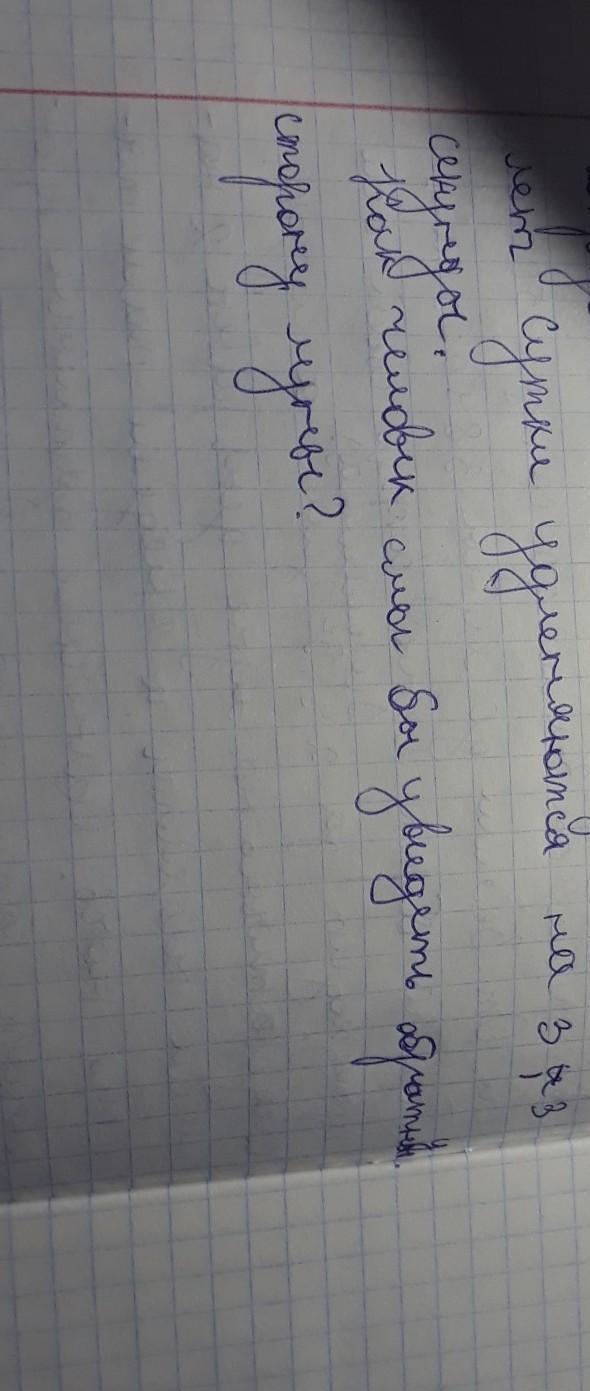 лет сутки удленяются на 3
секунды.
Как человек смог бы увидеть
сторону луны?